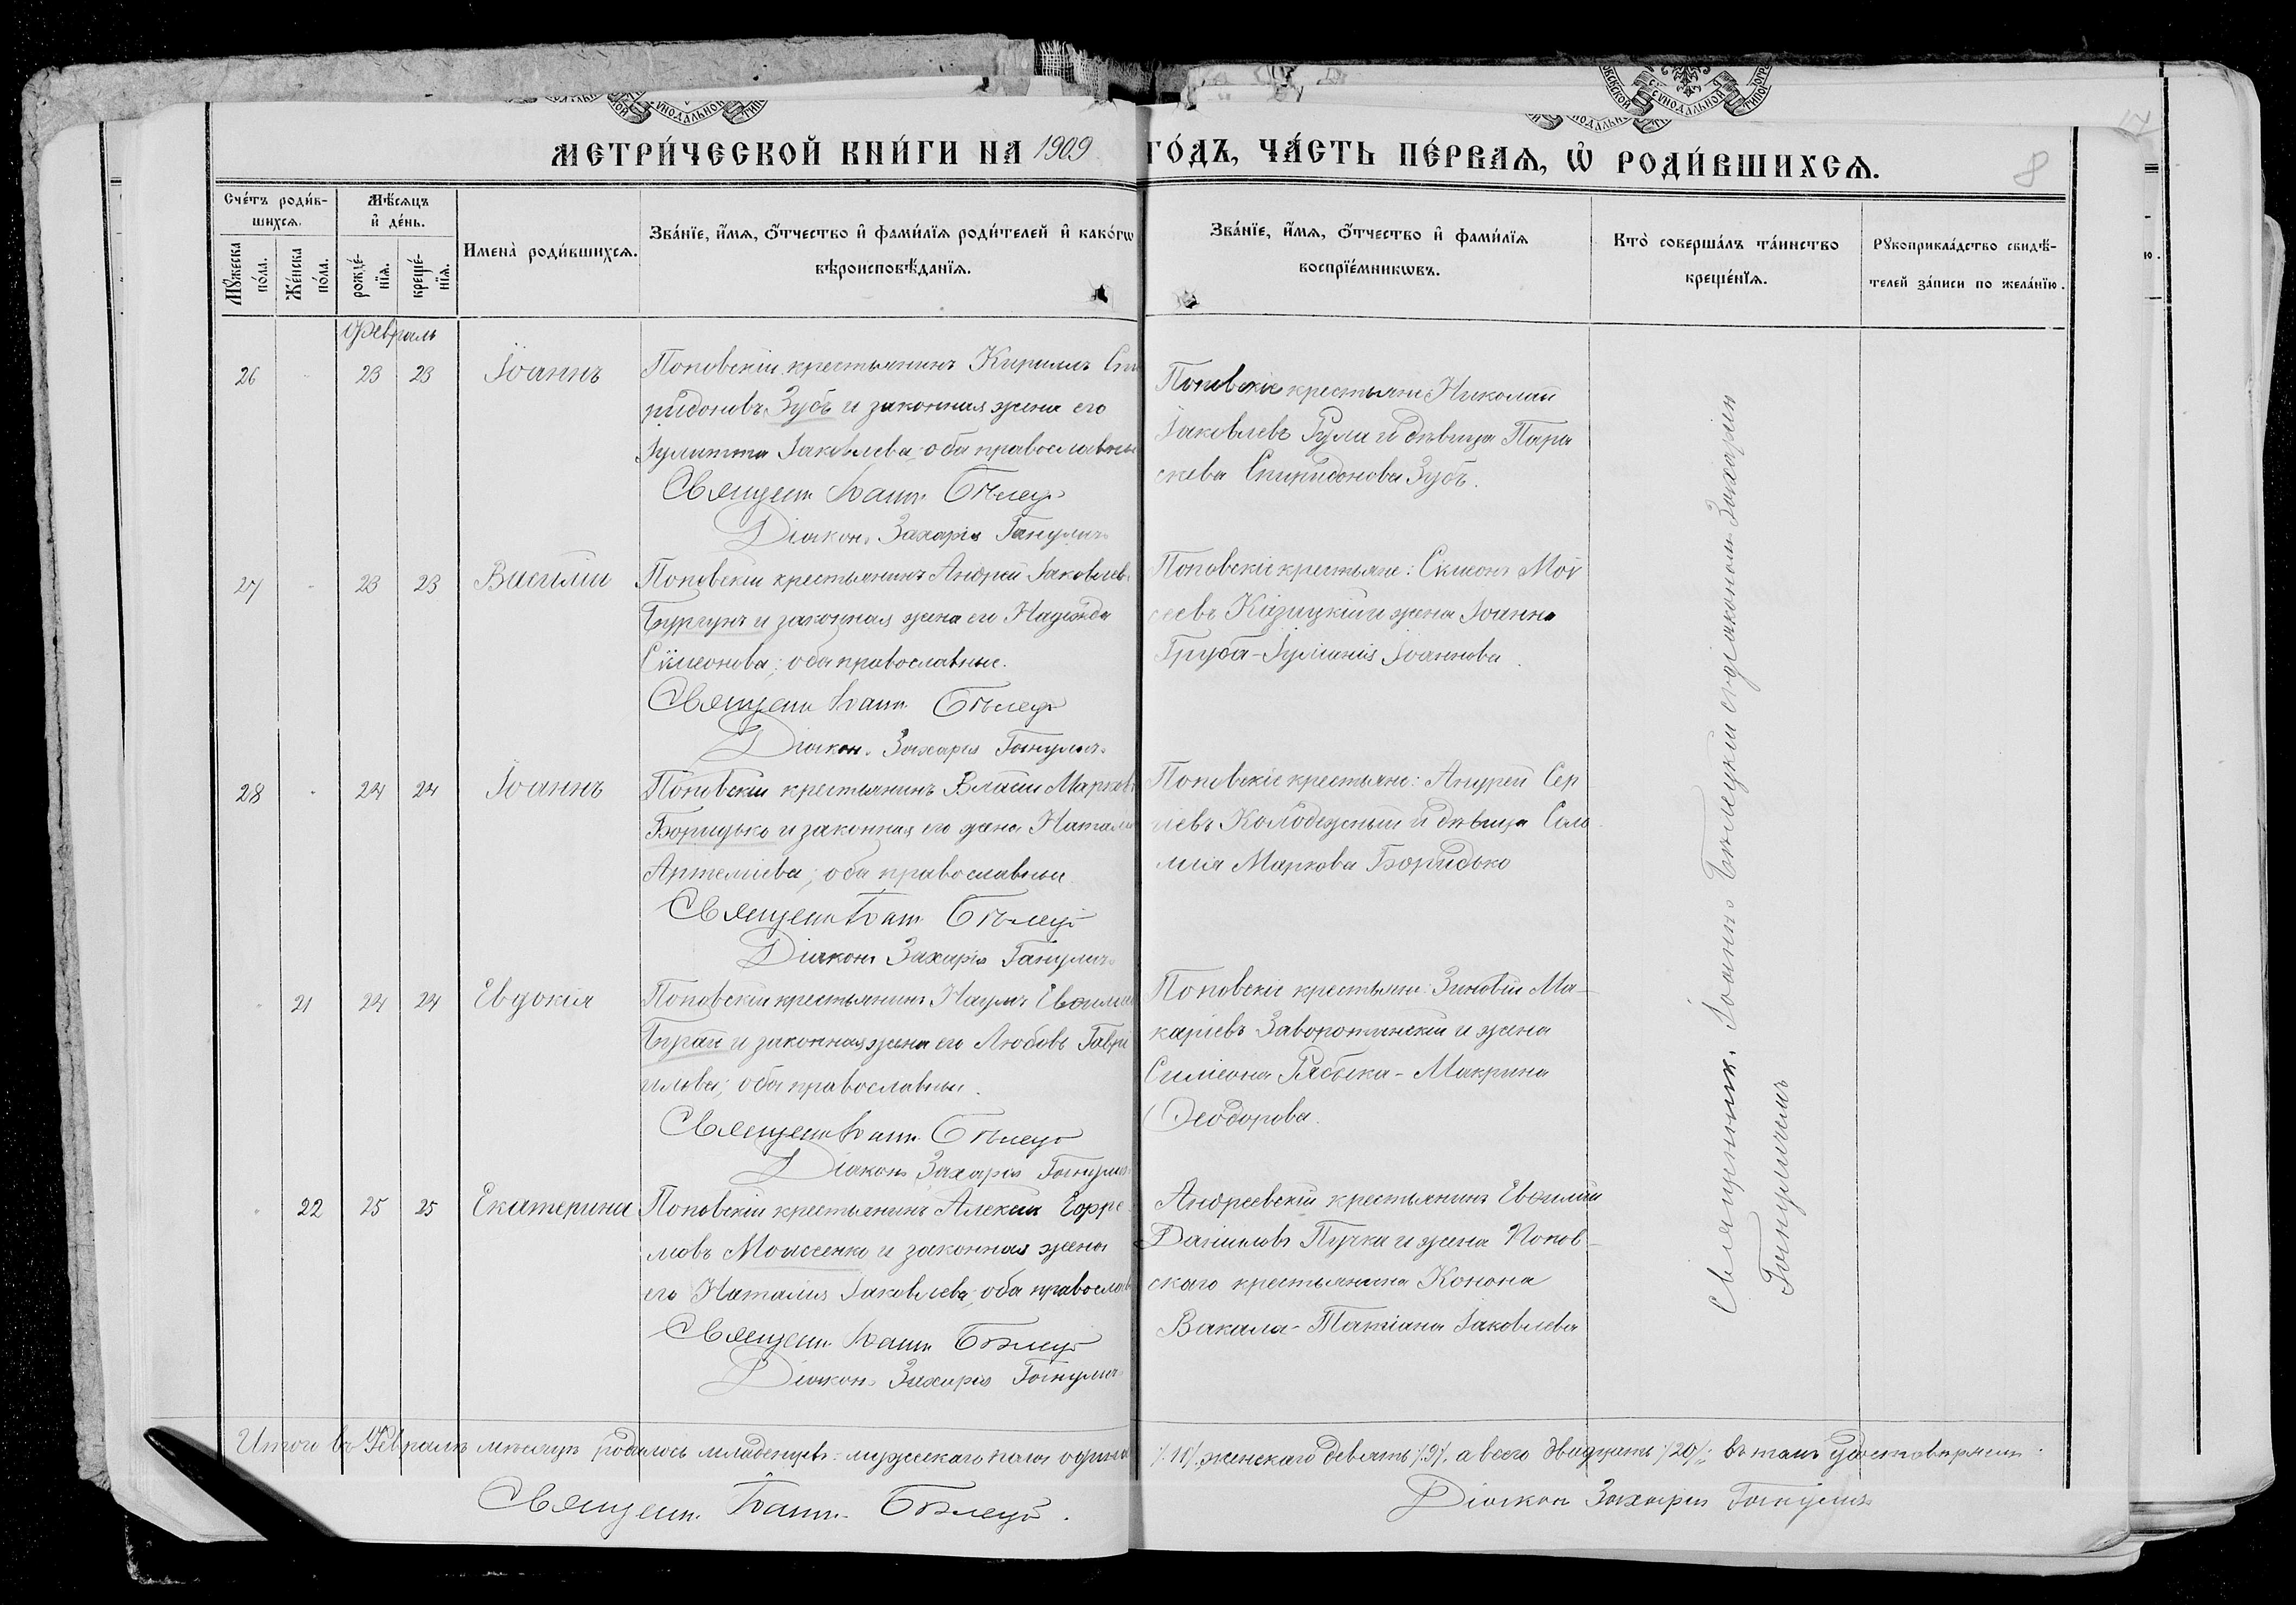 МЕТРИ́ЧЕСКОЙ КНИ́ГИ НА 1909 ГО́ДЪ, ЧА́СТЬ ПЕ́РВАѦ, Ѡ҆ РОДИ́ВШИХСѦ.
8
Сче́тъ роди́в-
шихсѧ.
Мѣ́сѧцъ
и҆ де́нь.
Мꙋ́жеска
по́ла.
Же́нска
по́ла.
рожде́-
нїѧ.
креще́-
нїѧ.
Имена̀ роди́вшихсѧ.
Зва́нїе, и҆́мѧ, ѻ҆́тчество и҆ фами́лїѧ роди́телей и҆ како́гѡ
вѣроисповѣ́данїѧ.
Зва́нїе, и҆́мѧ, ѻ҆́тчество и҆ фами́лїѧ
воспрїе́мникѡвъ.
Кто̀ соверша́лъ та́инство
креще́нїѧ.
Рꙋкоприкла́дство свидѣ́-
телей за́писи по жела́нїю.
Февраль
26 - 23 23 Іоаннъ
Поповскій крестьянинъ Кириллъ Спи
ридоновъ Зубъ и законная жена его
Іулитта Іаковлева; оба православные
Священ. Іоанн. Бѣлец
Діаконъ Захарія Ганулич
Поповскіе крестьяне Николай
Іаковлевъ Гула и дѣвица Пара
скева Спиридонова Зубъ.
27 - 23 23 Василій
Поповскій крестьянинъ Андрей Іаковлев
Бургунъ и законная жена его Надежда
Сѵмеонова; оба православные.
Священ. Іоанн. Бѣлец
Діакон. Захарія Ганулич
Поповскіе крестьяне: Сѵмеонъ Мой
сеевъ Казицкій и жена Іоанна
Груба - Іуліанія Іоаннова.
28 - 24 24 Іоаннъ
Поповскій крестьянинъ Власій Марков
Боридько и законная его жена Наталія
Артеміева; оба православные
Священ. Іоанн. Бѣлец
Діаконъ Захарія Ганулич
Поповскіе крестьяне: Андрей Сер
гіевъ Колодежный и дѣвица Сало
мія Маркова Боридько
- 21 24 24 Евдокія
Поповскій крестьянинъ Наумъ Евѳимі
Бугай и законная жена его Любовь Гаврі
илова; оба православные.
Священ. Іоанн. Бѣлец
Діаконъ Захарія Ганулич
Поповскіе крестьяне: Зиновій Ма-
каріевъ Заворотинскій и жена
Симеона Рябека - Макрина
Ѳеодорова.
- 22 25 25 Екатерина
Поповскій крестьянинъ Алексій Ефре
мовъ Моисеенко и законная жена
его Наталія Іаковлева; оба православ
Священ. Іоанн. Бѣлец
Діаконъ Захарія Ганулич
Андреевскій крестьянинъ Евѳимій
Даниловъ Пучка и жена Попов-
скаго крестьянина Конона
Вакала - Татіана Іаковлева
Священник. Іоаннъ Бѣлецкій съ діакономъ Захаріем
Гануличемъ
Итого въ Февралѣ мѣсяцѣ родилось младенцевъ: мужескаго пола одинна /11/, женскаго девять /9/, а всего двадцать /20/; въ томъ удостовѣряемъ.
Священ. Іоанн. Бѣлец. Діакон Захарія Ганулич